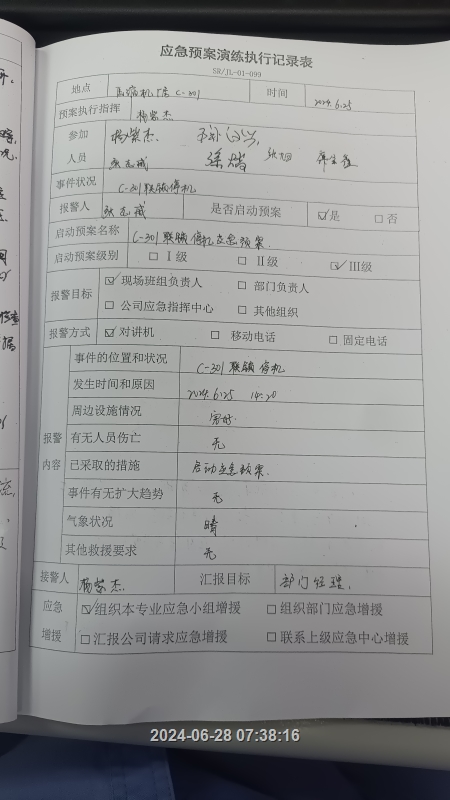 应急预案演练执行记录表
SH/JL-01-099
地点 压缩机厂房 C-301 时间 2024.6.25
预案执行指挥 杨紫杰
参加 杨紫杰.
人员
事件状况 C-301联锁停机
报警人 是否启动预案 ☑是 □否
启动预案名称 C-301联锁停机应急预案.
启动预案级别 □ Ⅰ级 □ Ⅱ级 ☑ Ⅲ级
报警目标 ☑ 现场班组负责人 □ 部门负责人
□ 公司应急指挥中心 □ 其他组织
报警方式 ☑ 对讲机 □ 移动电话 □ 固定电话
报警内容
事件的位置和状况 C-301联锁停机
发生时间和原因 2024.6.25 14:20
周边设施情况 完好.
有无人员伤亡 无
已采取的措施 启动应急预案.
事件有无扩大趋势 无
气象状况 晴
其他救援要求 无
接警人 杨紫杰. 汇报目标 部门经理.
应急 ☑组织本专业应急小组增援 □组织部门应急增援
增援 □汇报公司请求应急增援 □联系上级应急中心增援
2024-06-28 07:38:16